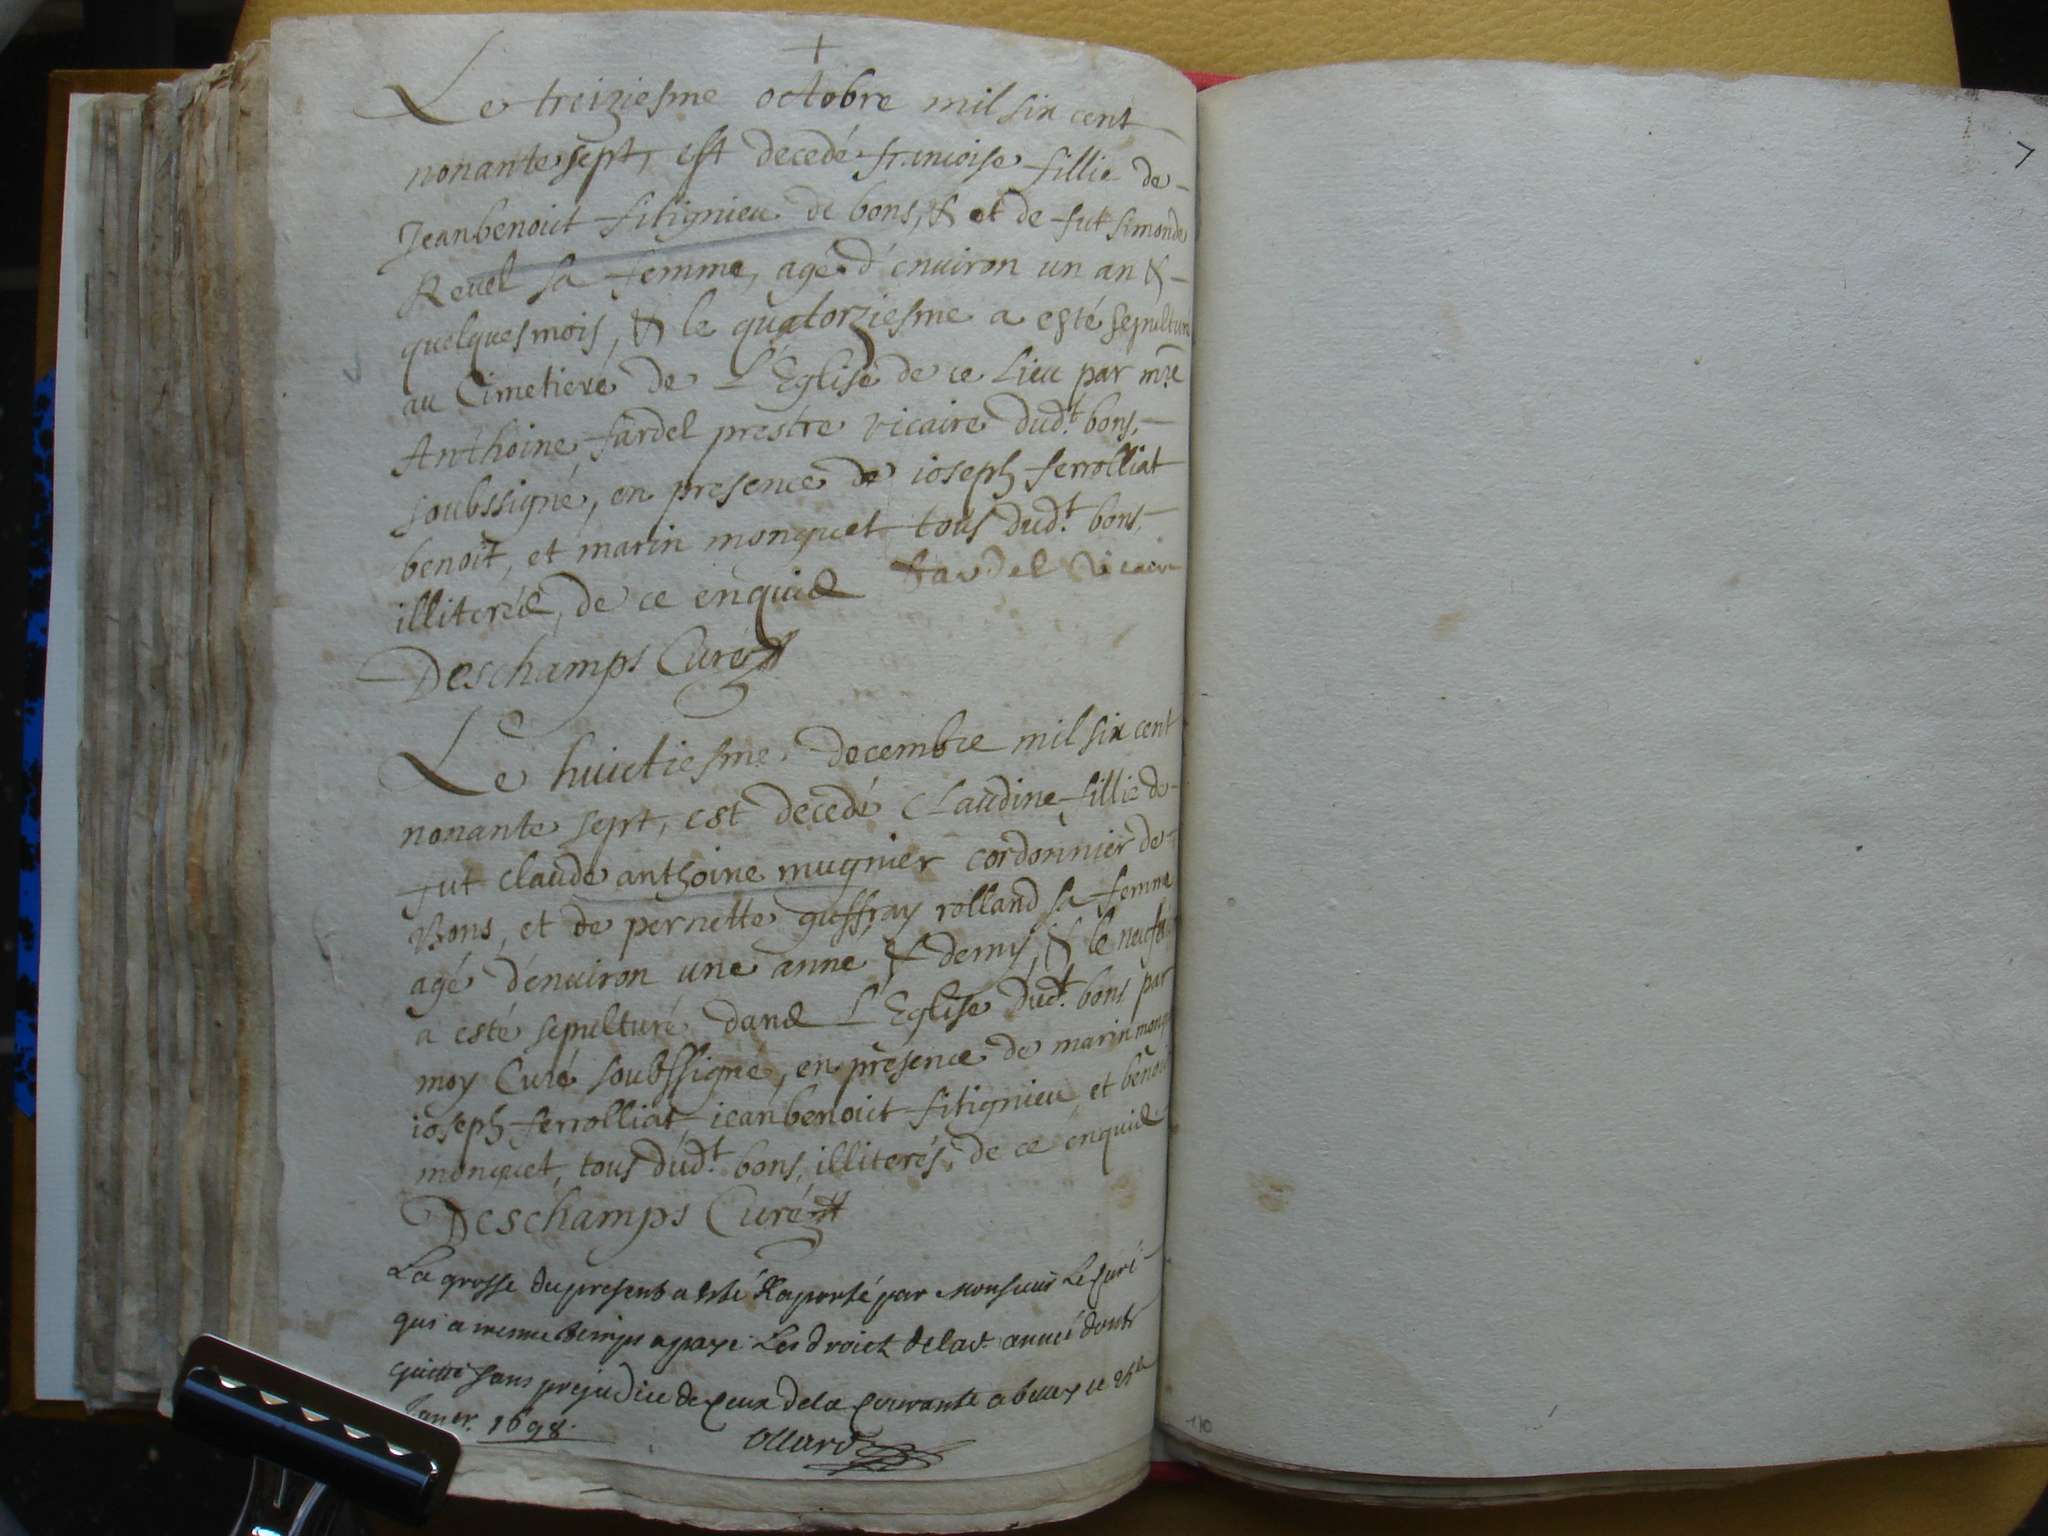 Le treiziesme octobre mil six cent
nonante sept, est decedé francoise fillie de
Jeanbenoict fitignieu de bons, & et de fut simonde
Revel sa femme, agé d'enuiron un an &
quelques mois, & le quatorziesme a esté sepulturé
au Cimetiere de L'Eglise de ce Lieu par mre
Anthoine fardel prestre vicaire dudt. bons,
soubssigné, en presence de ioseph ferrolliat
benoit, et marin monquet tous dudt. bons,
illiteréz, de ce enquiz fardel Vicaire
Deschamps Curé
Le huictiesme decembre mil six cent
nonante sept, est decedé Claudine fillie de
fut claude anthoine mugnier cordonnier de
Bons, et de pernette guffray rolland sa femme
agé d'enuiron une anne & demy, & le neufe
a esté sepulturé danz L'Eglise dudt. bons par
moy Curé soubssigné, en presence de marin monq
ioseph ferrolliat jeanbenoict fitignieu et benoi
monquet, tous dudt. bons, illiterés, de ce enquiz
Deschamps Curé
La grosse du present a esté Raporté par Monsieur Le Curé
qui a mesme temps a payé Les droict de lad. année dont
quitte sans prejudice de ceux de la Courante a belley ce
Janer. 1698.